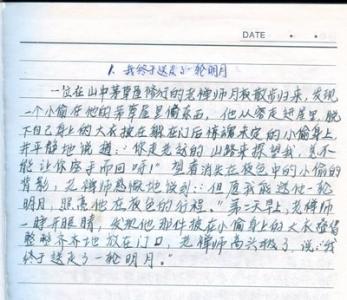 DATE
1. 我终于送走了一轮明月
一位在山中茅草屋修行的老禅师月夜散步归来，发现
一个小偷在他的茅草屋里偷东西，他从容走进屋里，脱
下自己身上的大衣披在躲在门后惊惶未定的小偷身上，
并平静地说道：“你走老远的山路来探望我，总不
能让你空手而回呀！”望着消失在夜色中的小偷的
背影，老禅师感慨地说到：“但愿我能送他一轮
明月，照亮他在夜色的行程。”第二天早上，老禅师
一睁开眼睛，发现他那件披在小偷身上的大衣被
整整齐齐地放在门口，老禅师高兴极了，说：“我
终于送走了一轮明月。”